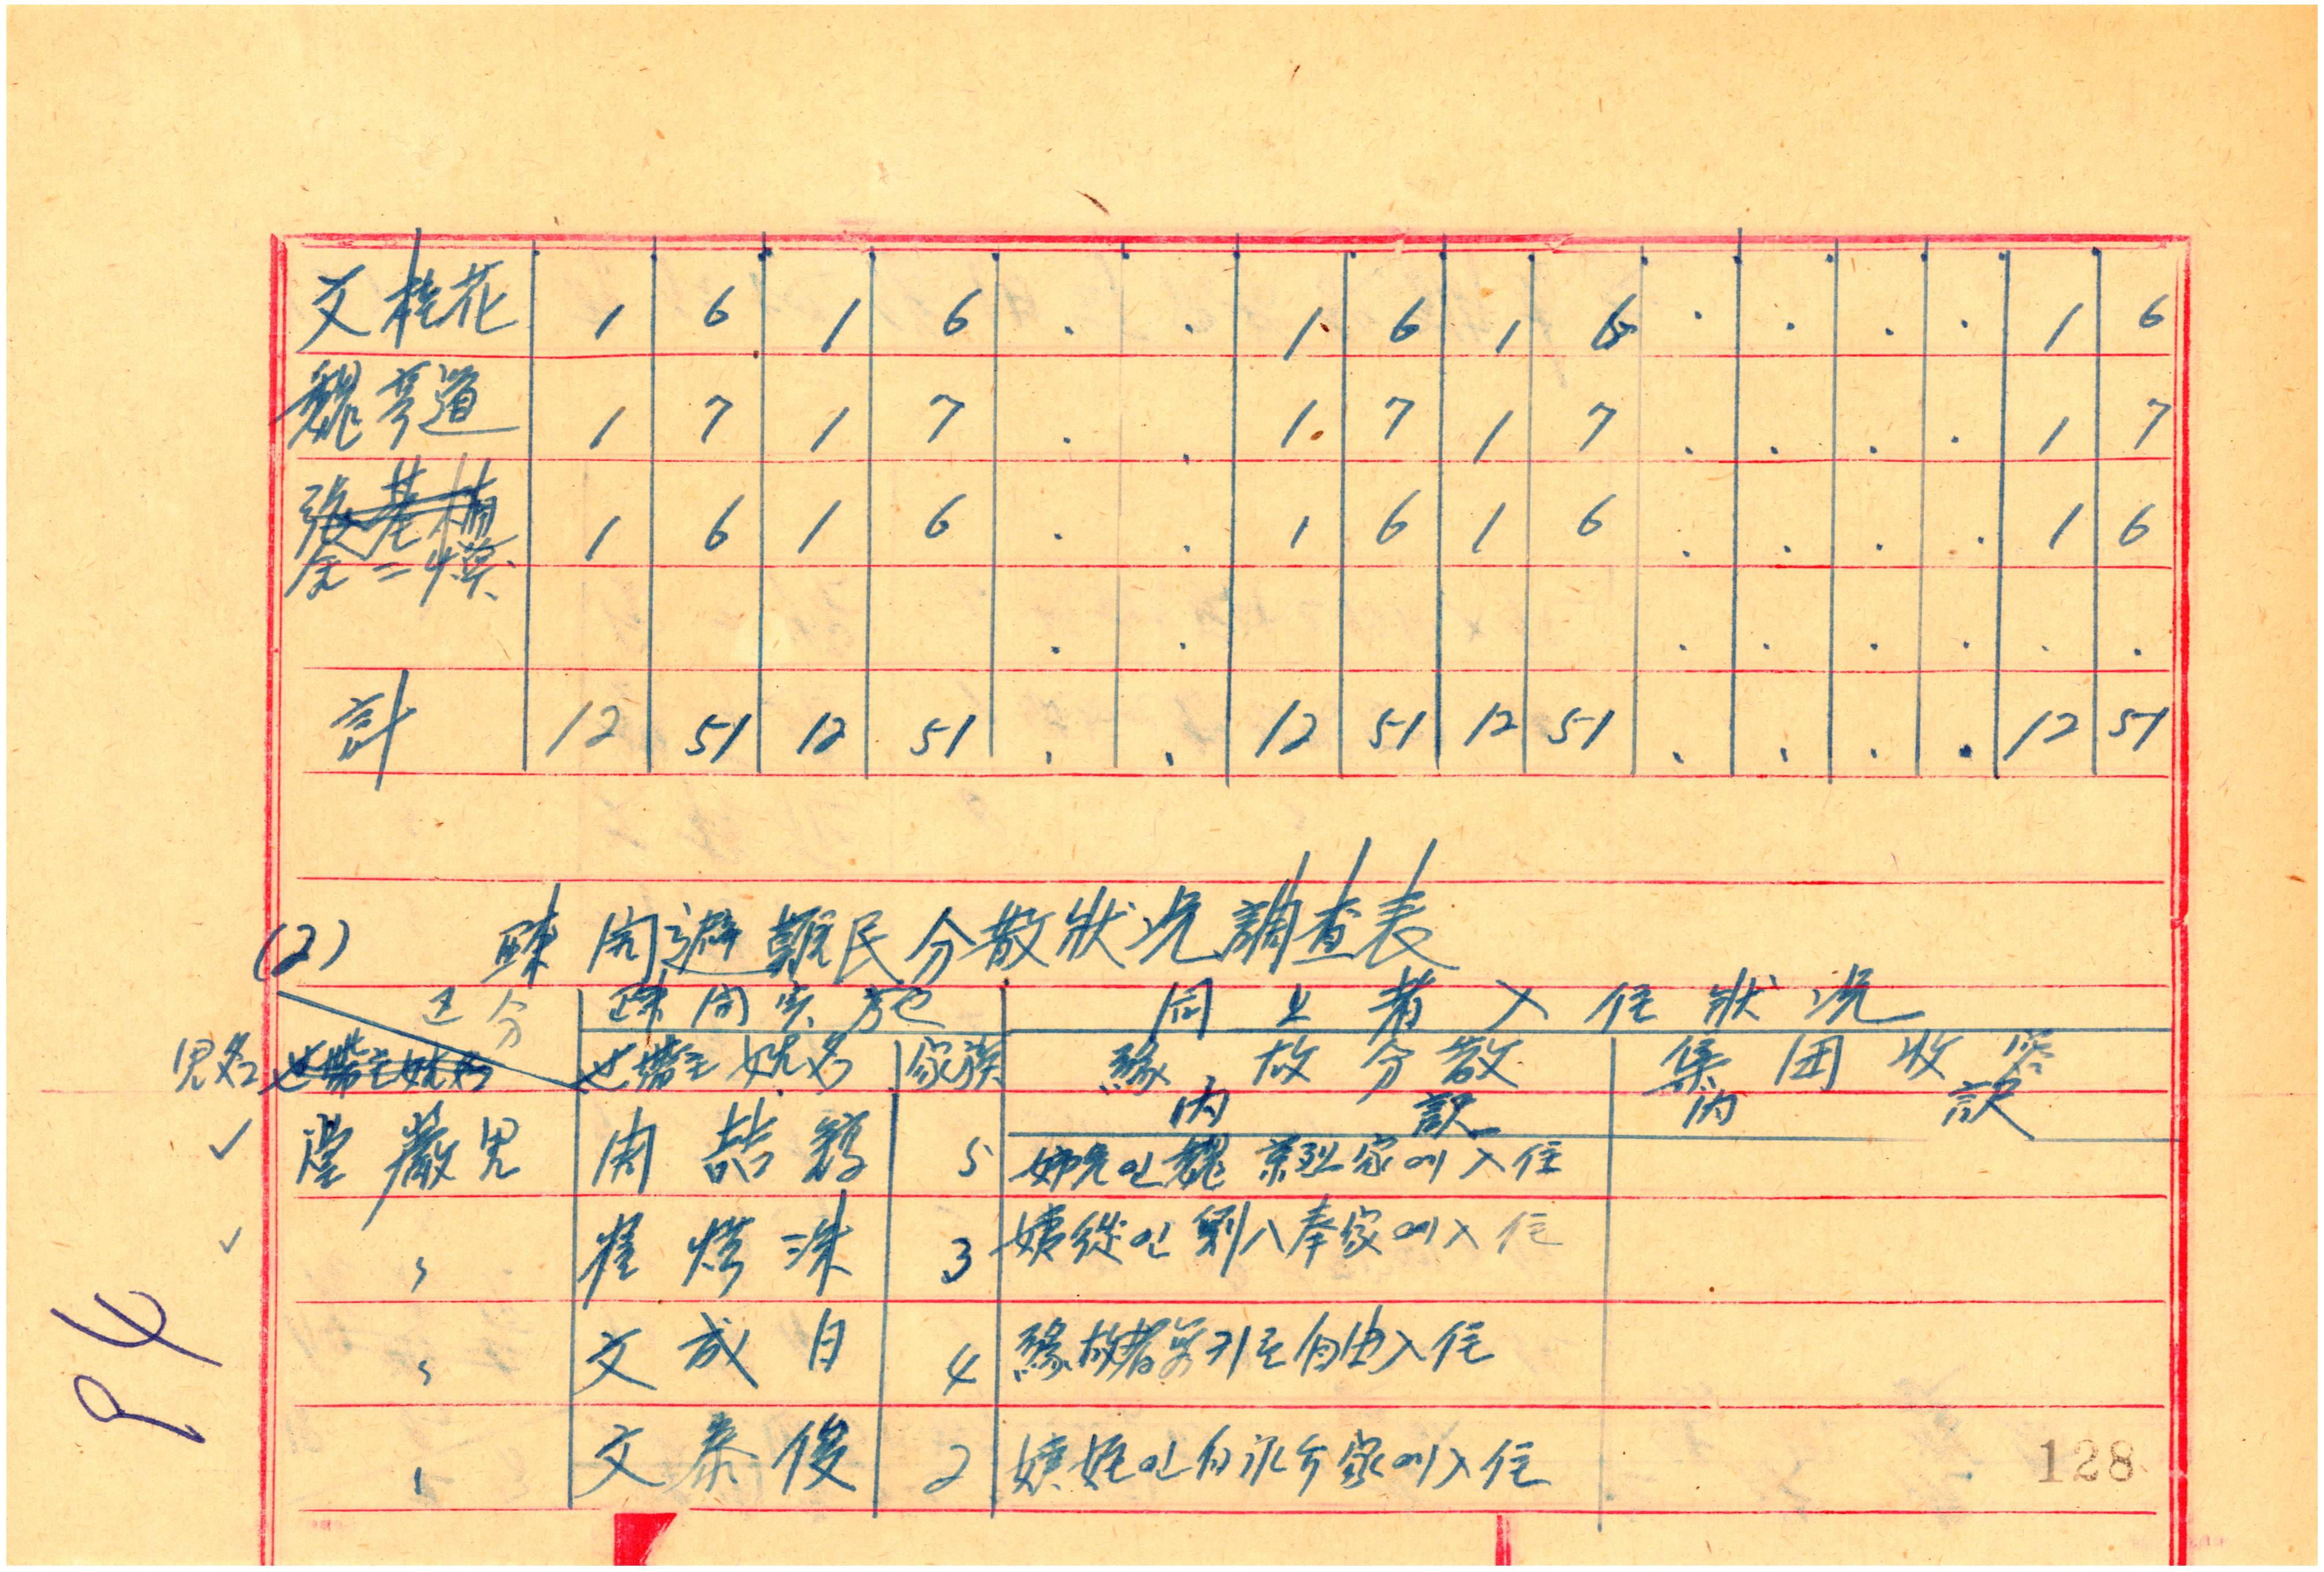 文桂花 1 6 1 6 . . 1 6 1 6 . . . . 1 6
魏亨道 1 7 1 7 . . 1 7 1 7 . . . . 1 7
張基楠 1 6 1 6 . . 1 6 1 6 . . . . 1 6
金二模
. . . . . . . .
計 12 51 12 51 . . 12 51 12 51 . . . . 12 51
(2) 疎開避難民分散狀况調查表
区分 疎開実施 同上者入住狀况
里名 世帶主姓名 世帶主姓名 家族 緣故分散 集団收容
內訳 內訳
堂巖里 周喆鎬 5 姉兄인 魏 家에入住
〃 崔 洙 3 姨從인 劉八奉家에入住
〃 文成日 4 緣故者 自由入住
〃 文泰俊 2 姨姪인 家에入住
94
128